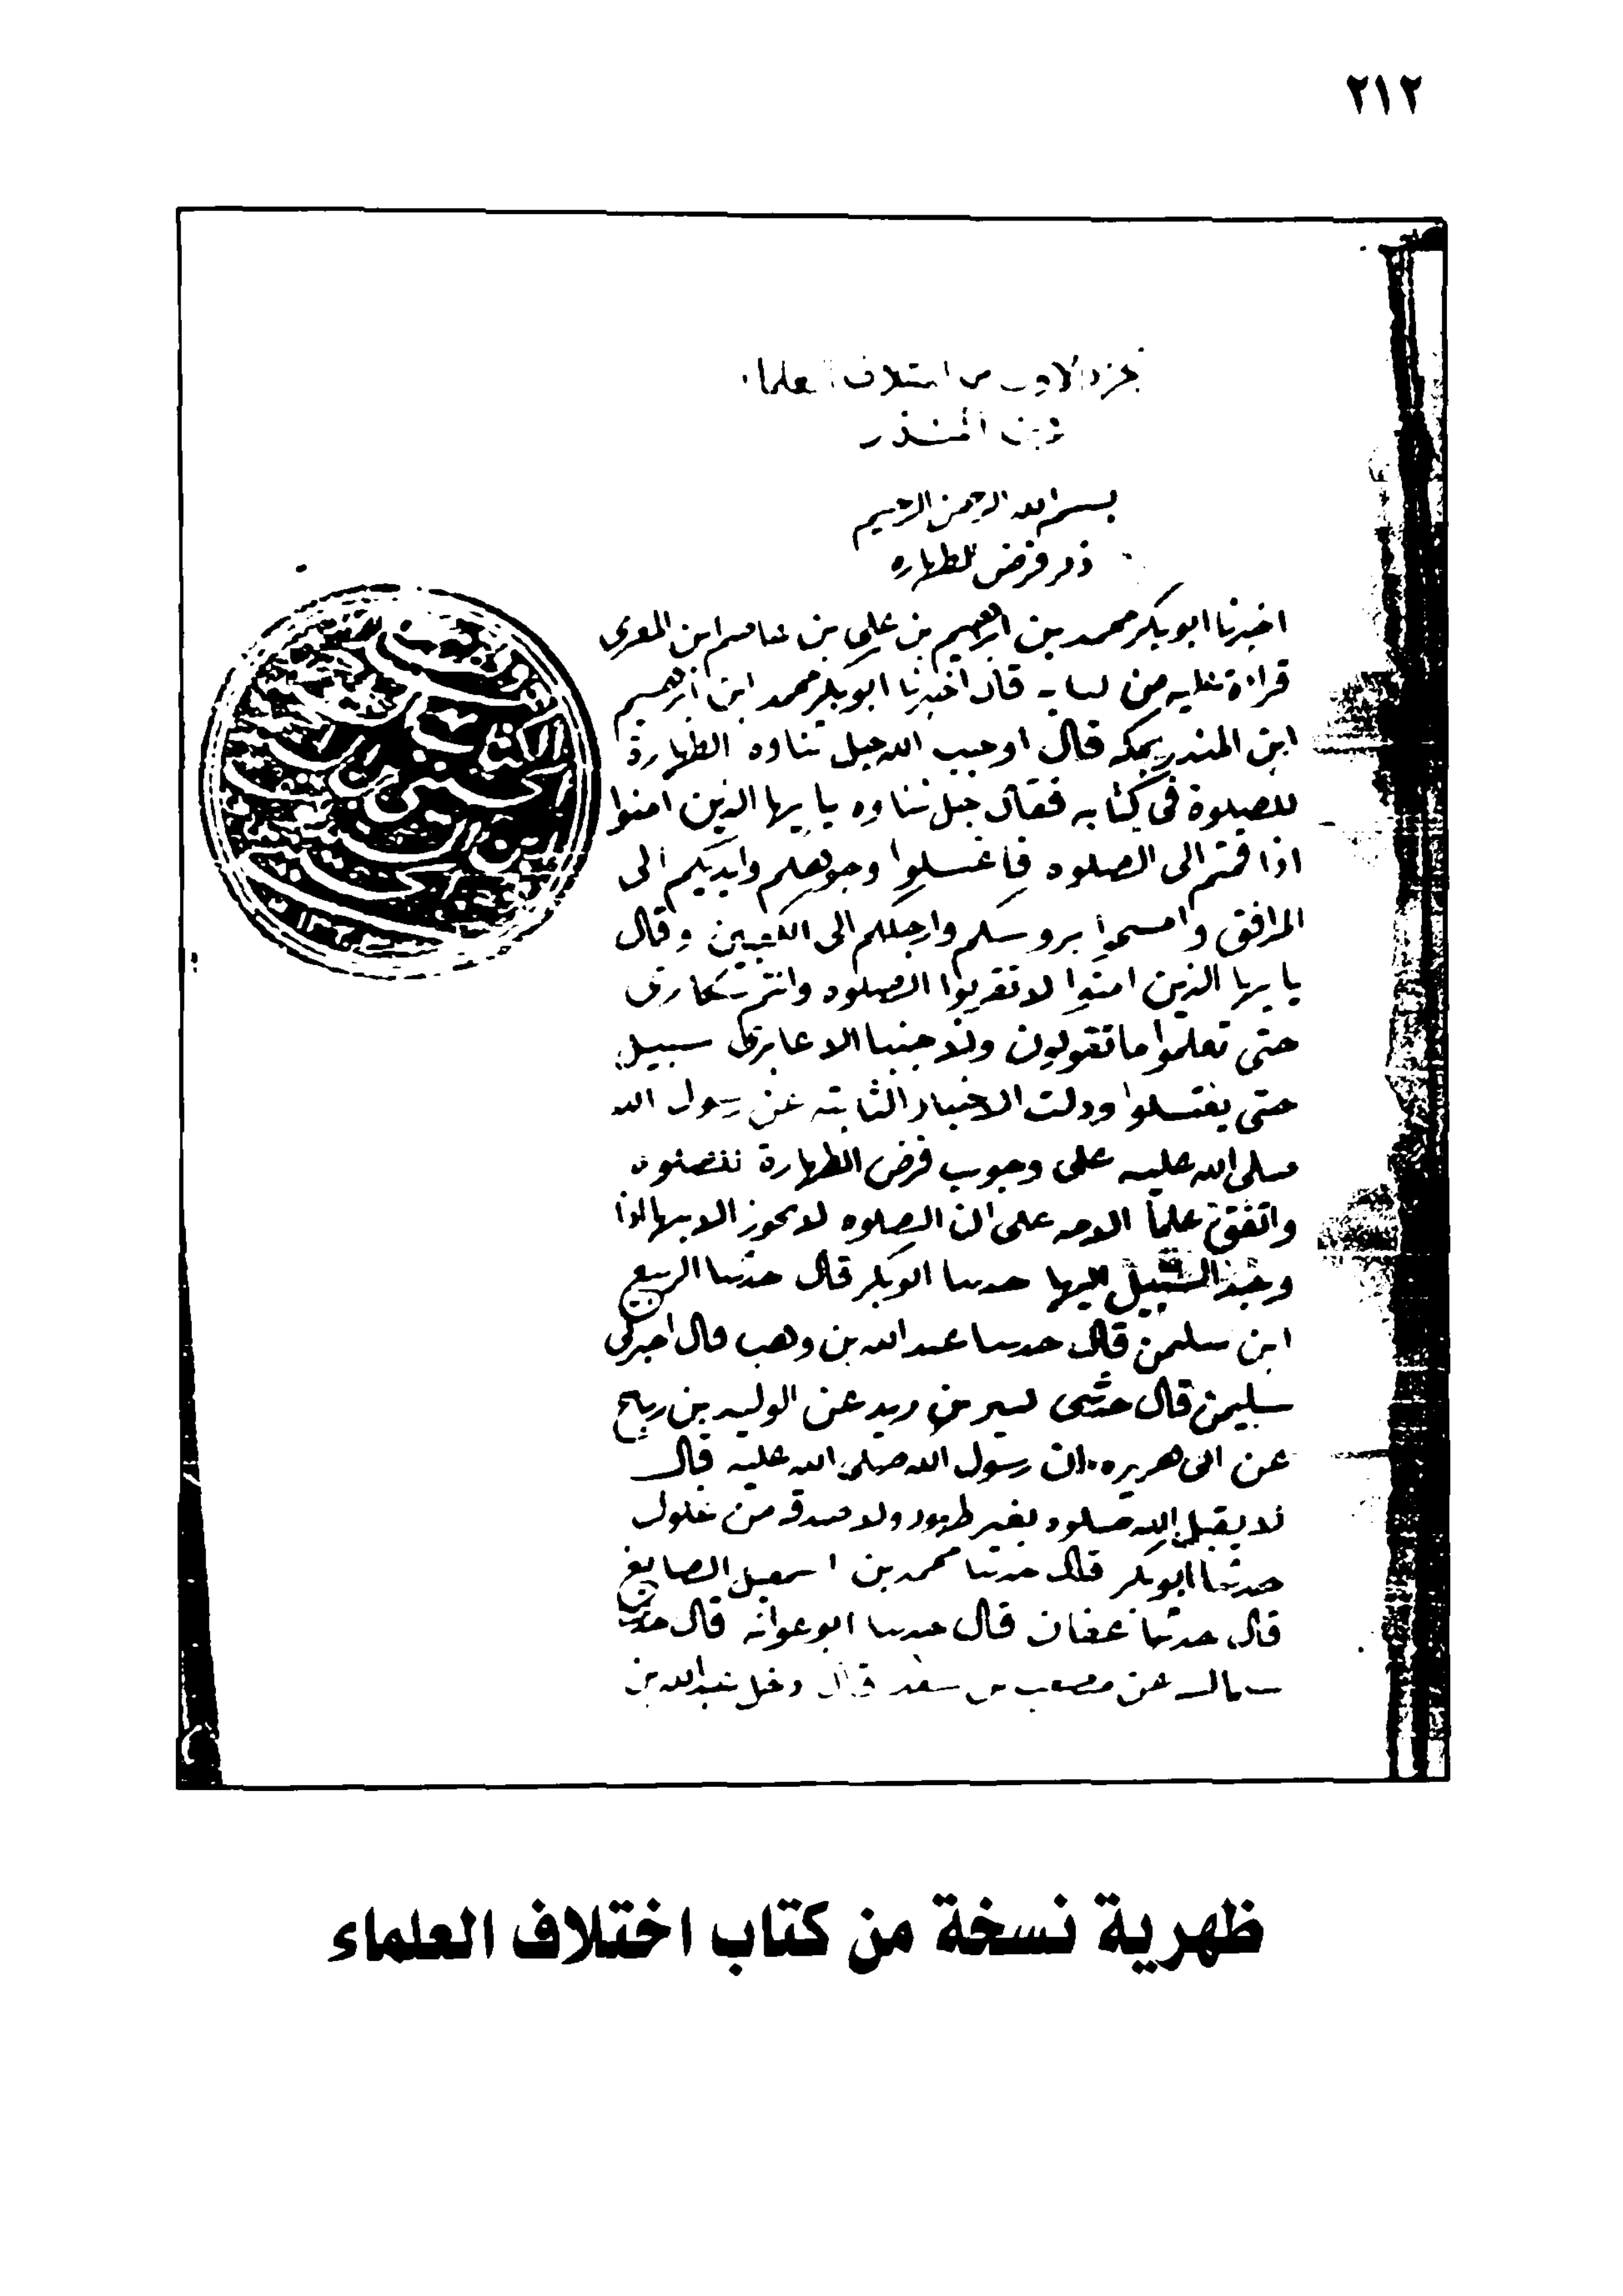 ٢١٢
الاول من اختلاف العلماء
المنذر
بسم الله الرحمن الرحيم
ذكر فرض الطهاره
اخبرنا ابو بكر محمد بن ابرهيم بن علي بن عاصم ابن المقرى
قراءة عليه من كتابه قال اخبرنا ابو بكر محمد ابن ابرهيم
ابن المنذر بمكه قال اوجب الله جل ثناوه الطهارة
للصلوة في كتابه فقال جل ثناوه يا يها الذين امنوا
اذا قمتم الى الصلوه فاغسلوا وجوهكم وايديكم الى
المرافق وامسحوا بروسكم وارجلكم الى الكعبين وقال
يا يها الذين امنوا لا تقربوا الصلوه وانتم سكارى
حتى تعلموا ما تقولون ولا جنبا الا عابرى سبيل
حتى يغتسلوا ودلت الاخبار الثابته عن رسول الله
صلى الله عليه على وجوب فرض الطهارة للصلوه
واتفق علما الامه على ان الصلوه لا تجوز الا بها اذا
وجد السبيل اليها حدثنا ابو بكر قال حدثنا الربيع
ابن سليمن قال حدثنا عبد الله بن وهب قال اخبرني
سليمن قال حدثنى كثير بن زيد عن الوليد بن رباح
عن ابى هريره ان رسول الله صلى الله عليه قال
لا يقبل الله صلوه بغير طهور ولا صدقه من غلول
حدثنا ابو بكر قال حدثنا محمد بن اسمعيل الصايغ
قال حدثنا عفان قال حدثنا ابو عوانه قال حدثنا
سماك عن مصعب بن سعد قال دخل عبد الله بن
ظهرية نسخة من كتاب اختلاف العلماء